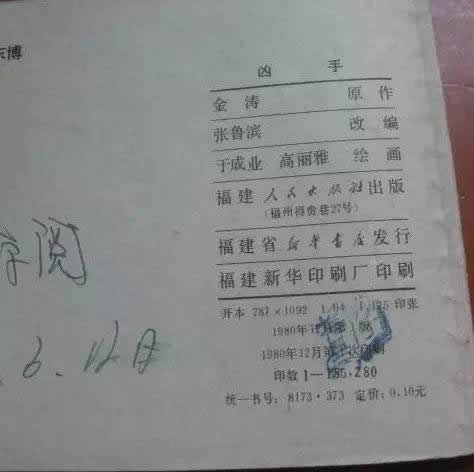 东博
凶 手
金涛 原作
张鲁滨 改编
于成业 高丽雅 绘画
福建人民出版社出版
(福州得贵巷27号)
福建省新华书店发行
福建新华印刷厂印刷
开本 787×1092 1/64 1.125 印张
1980年12月第1版
1980年12月第1次印刷
印数1—185,280
统一书号:8173·373 定价:0.10元
阅
6.12日